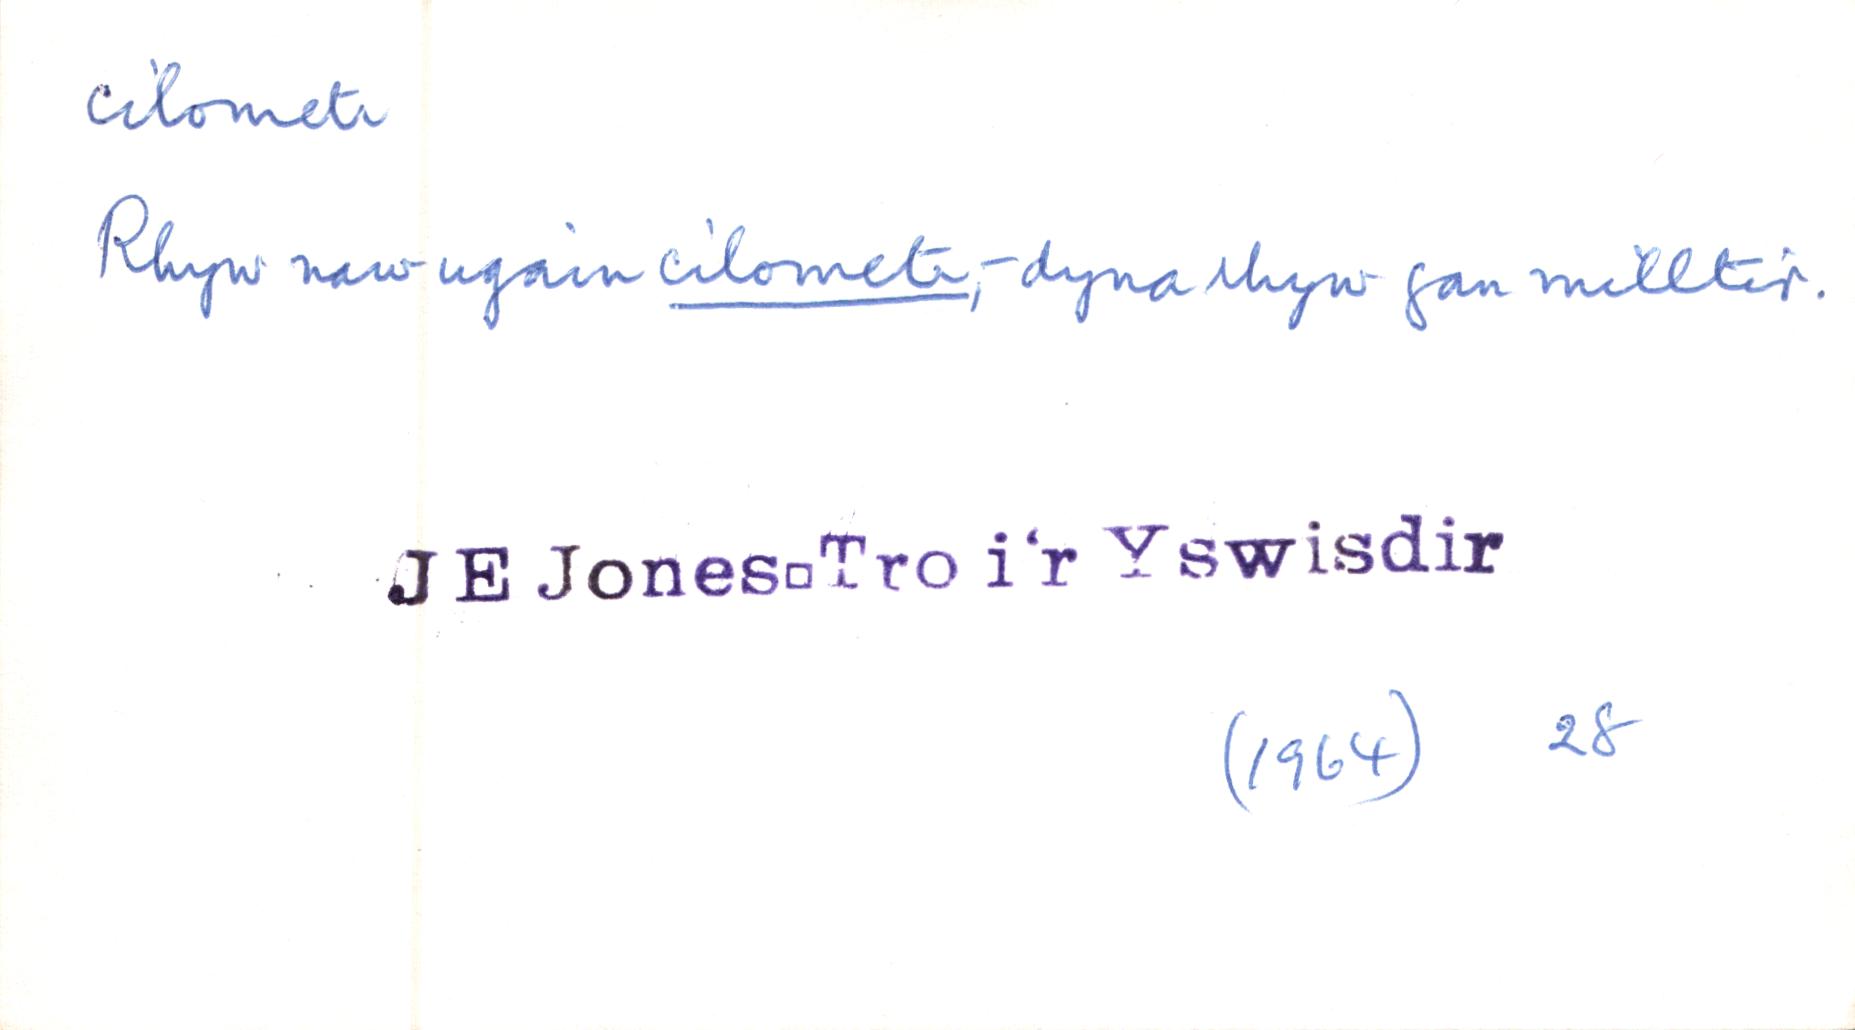 cilometr
Rhyw naw ugain cilometr,- dyna rhyw gan milltir.
J E Jones▫Tro i'r Yswisdir
(1964) 28